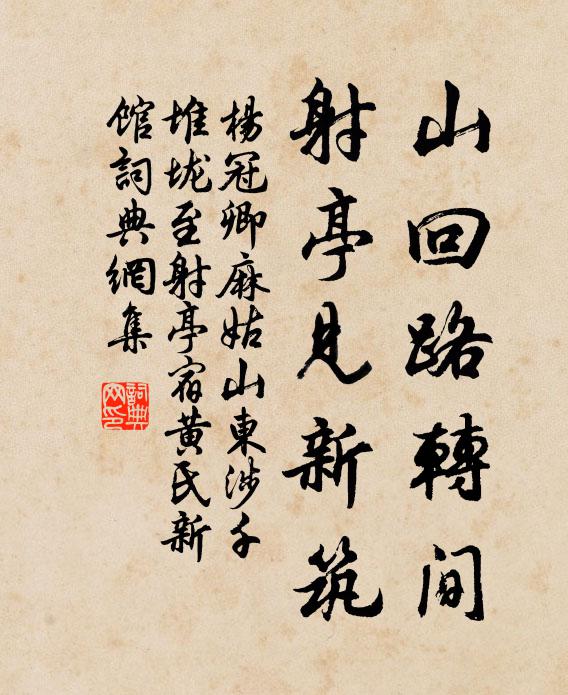 山回路轉間
射亭見新筑
楊冠卿麻姑山東涉千
堆垅至射亭宿黄氏新
館詞典網集
詞典
网印